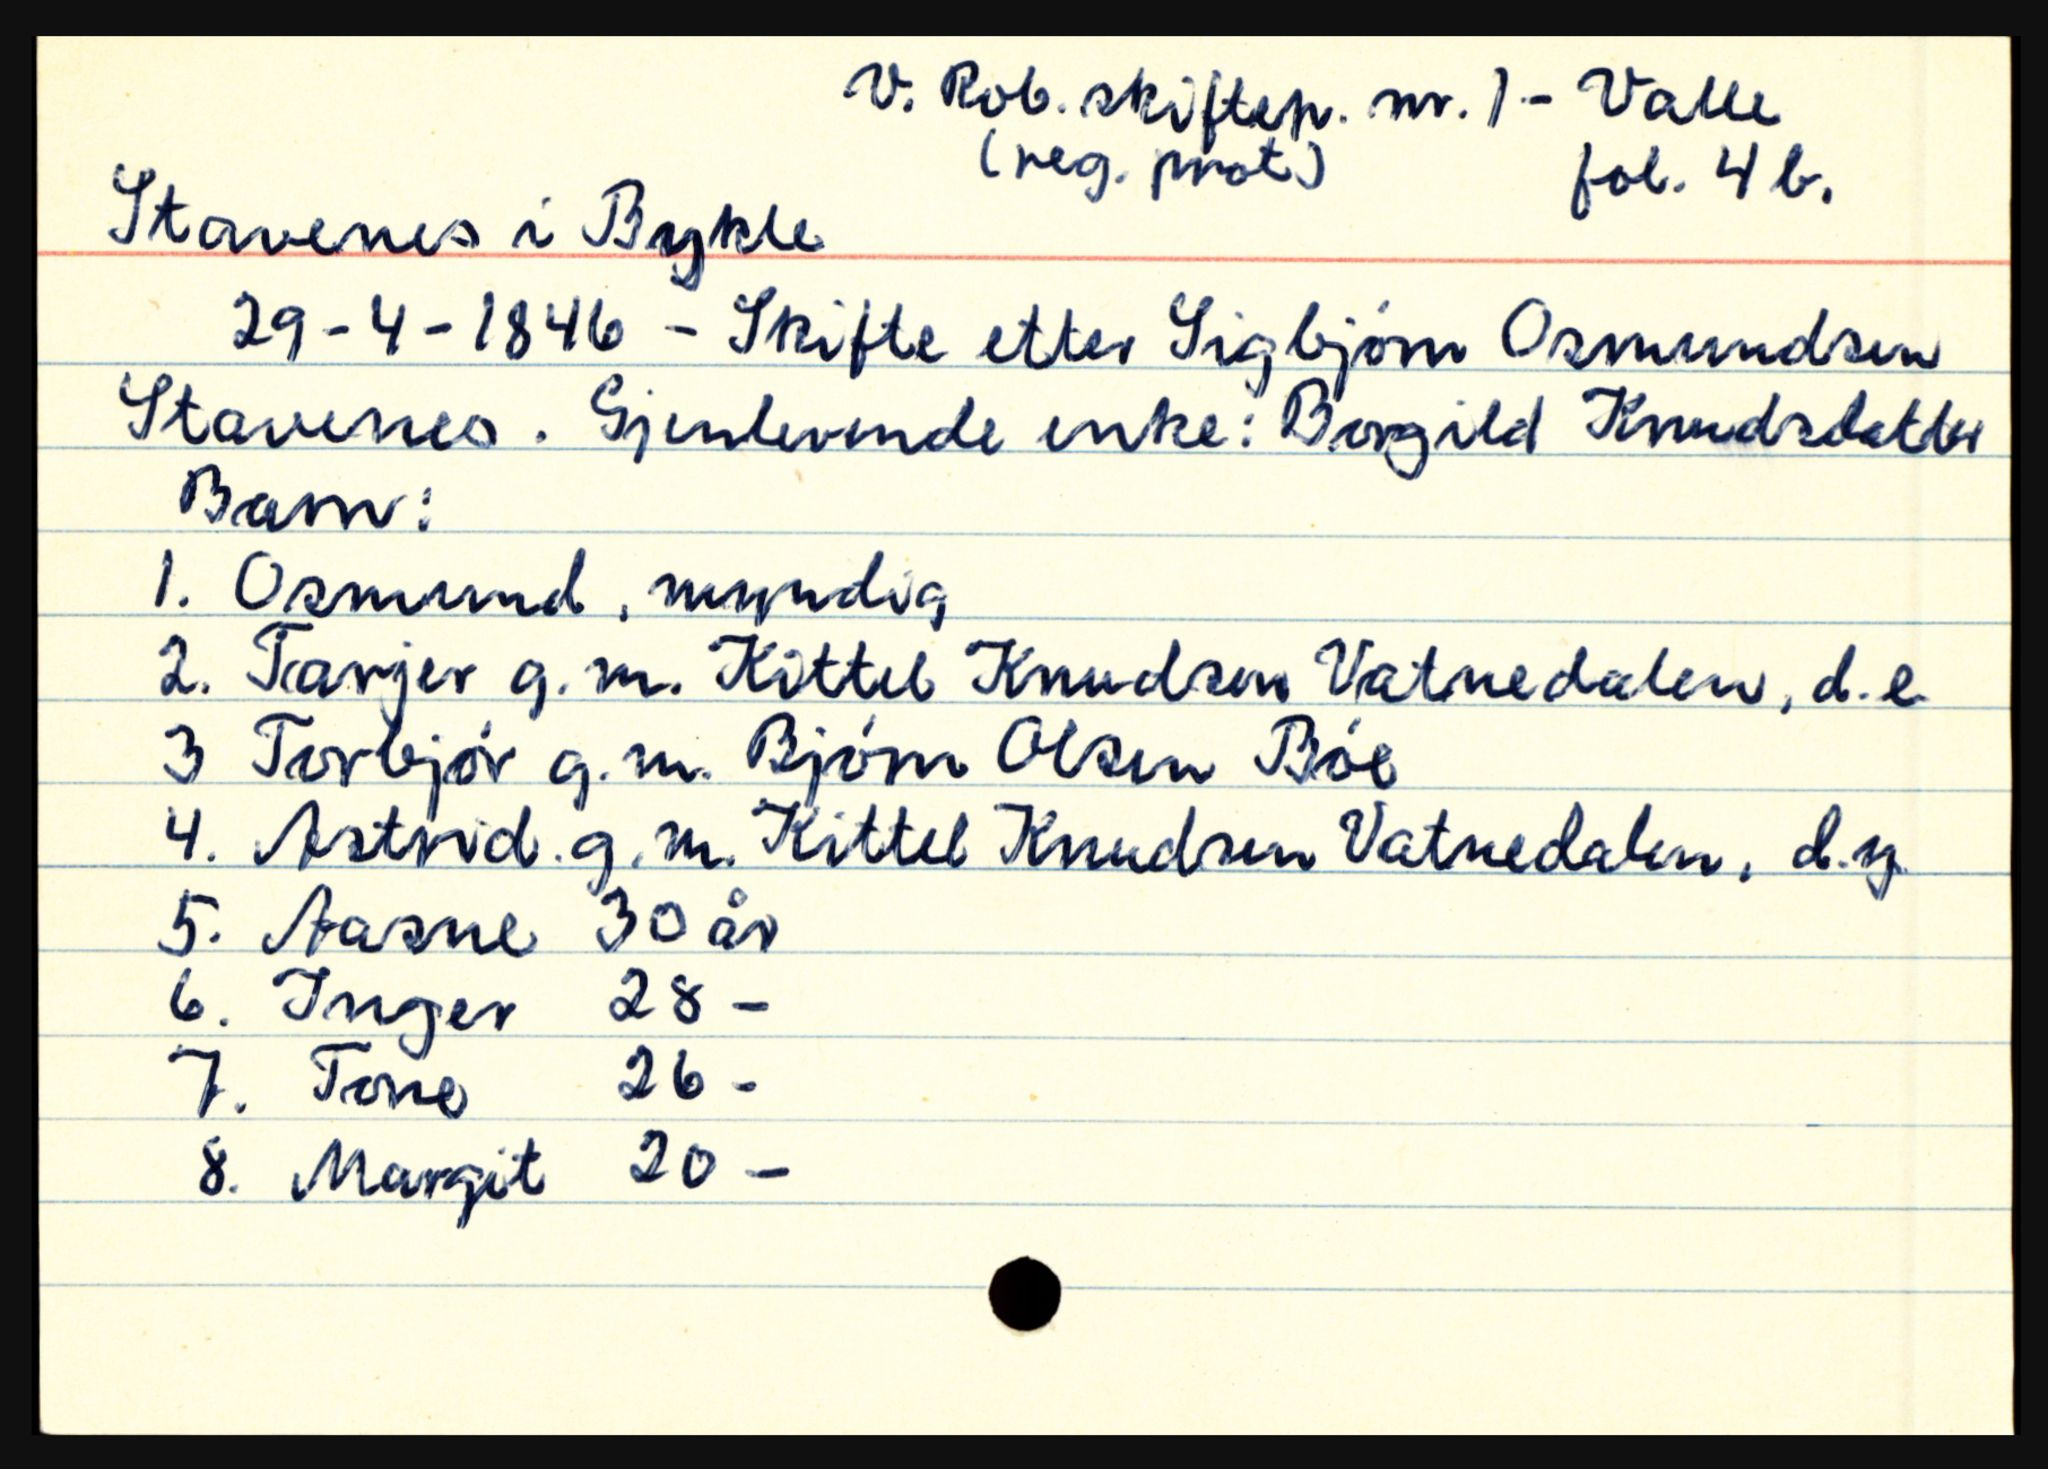 V. Rob. skiftep. nr. 1 - Valle
(reg. prot) fol. 4 b.
Stavenes i Bykle
29-4-1846 - Skifte etter Sigbjørn Osmundsen
Stavenes. Gjenlevende enke: Borgild Knudsdatter
Barn:
1. Osmund, myndig
2. Tarjer g. m. Kittel Knudsen Vatnedalen, d.e
3 Torbjør g. m. Bjørn Olsen Bøe
4. Astrid. g. m. Kittel Knudsen Vatnedalen, d.y.
5. Aasne 30 år
6. Inger 28 -
7. Tone 26 -
8. Margit 20 -